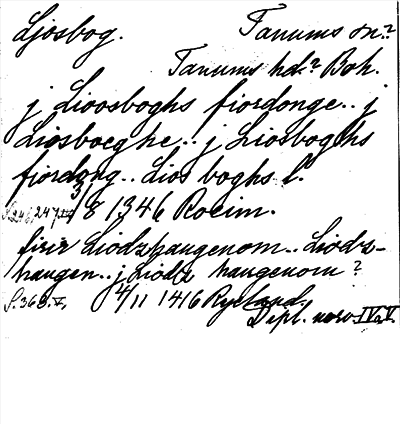 Ljosbog. Tanums sn.?
Tanums hd.? Boh.
j Lioosboghs fiordonge.. j
Liosboeghe.. j Liosboghs
fiordung.. Lios boghs l.
S. 246, 247 III 3/8 1346 Roeim.
firir Liodzhaugenom.. Liodz-
haugen.. j Liodz haugenom?
S. 368. V. 4/11 1416 Rysland.
Dipl. norv. IV, V.